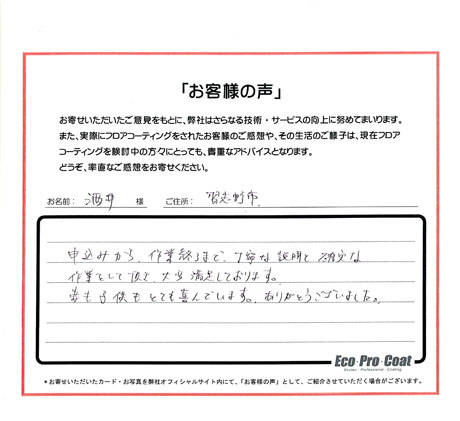 「お客様の声」
お寄せいただいたご意見をもとに、弊社はさらなる技術・サービスの向上に努めてまいります。
また、実際にフロアコーティングをされたお客様のご感想や、その生活のご様子は、現在フロア
コーティングを検討中の方々にとっても、貴重なアドバイスとなります。
どうぞ、率直なご感想をお寄せください。
お名前： 酒井 様 ご住所： 習志野市
申込みから、作業終了まで、丁寧な説明と確実な
作業をして頂き、大変満足しております。
妻も子供もとても喜んでいます。ありがとうございました。
Eco・Pro・Coat
Ecolo・Professional・Coating
＊お寄せいただいたカード・お写真を弊社オフィシャルサイト内にて、「お客様の声」として、ご紹介させていただく場合がございます。